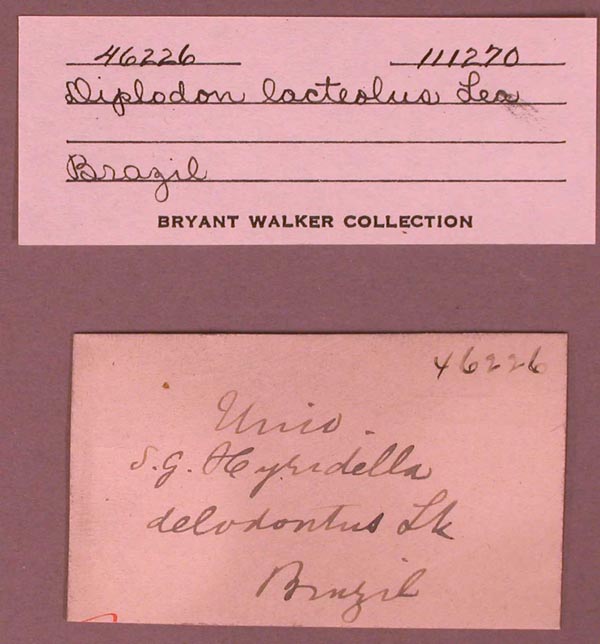 46226 111270
Diplodon lacteolus Lea
Brazil
BRYANT WALKER COLLECTION
46226
Unio.
S.G. Hyridella
delodontus Lk
Brazil